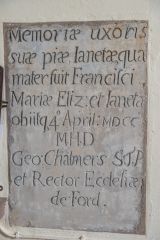 Memoriæ uxoris
suæ piæ Ianetæ, qua
mater fuit Francisci
Mariæ Eliz: et Ianeta
obiit 94 April: MDCC
MHD
Geo: Chalmers STP
et Rector Ecclesiæ
de Ford.